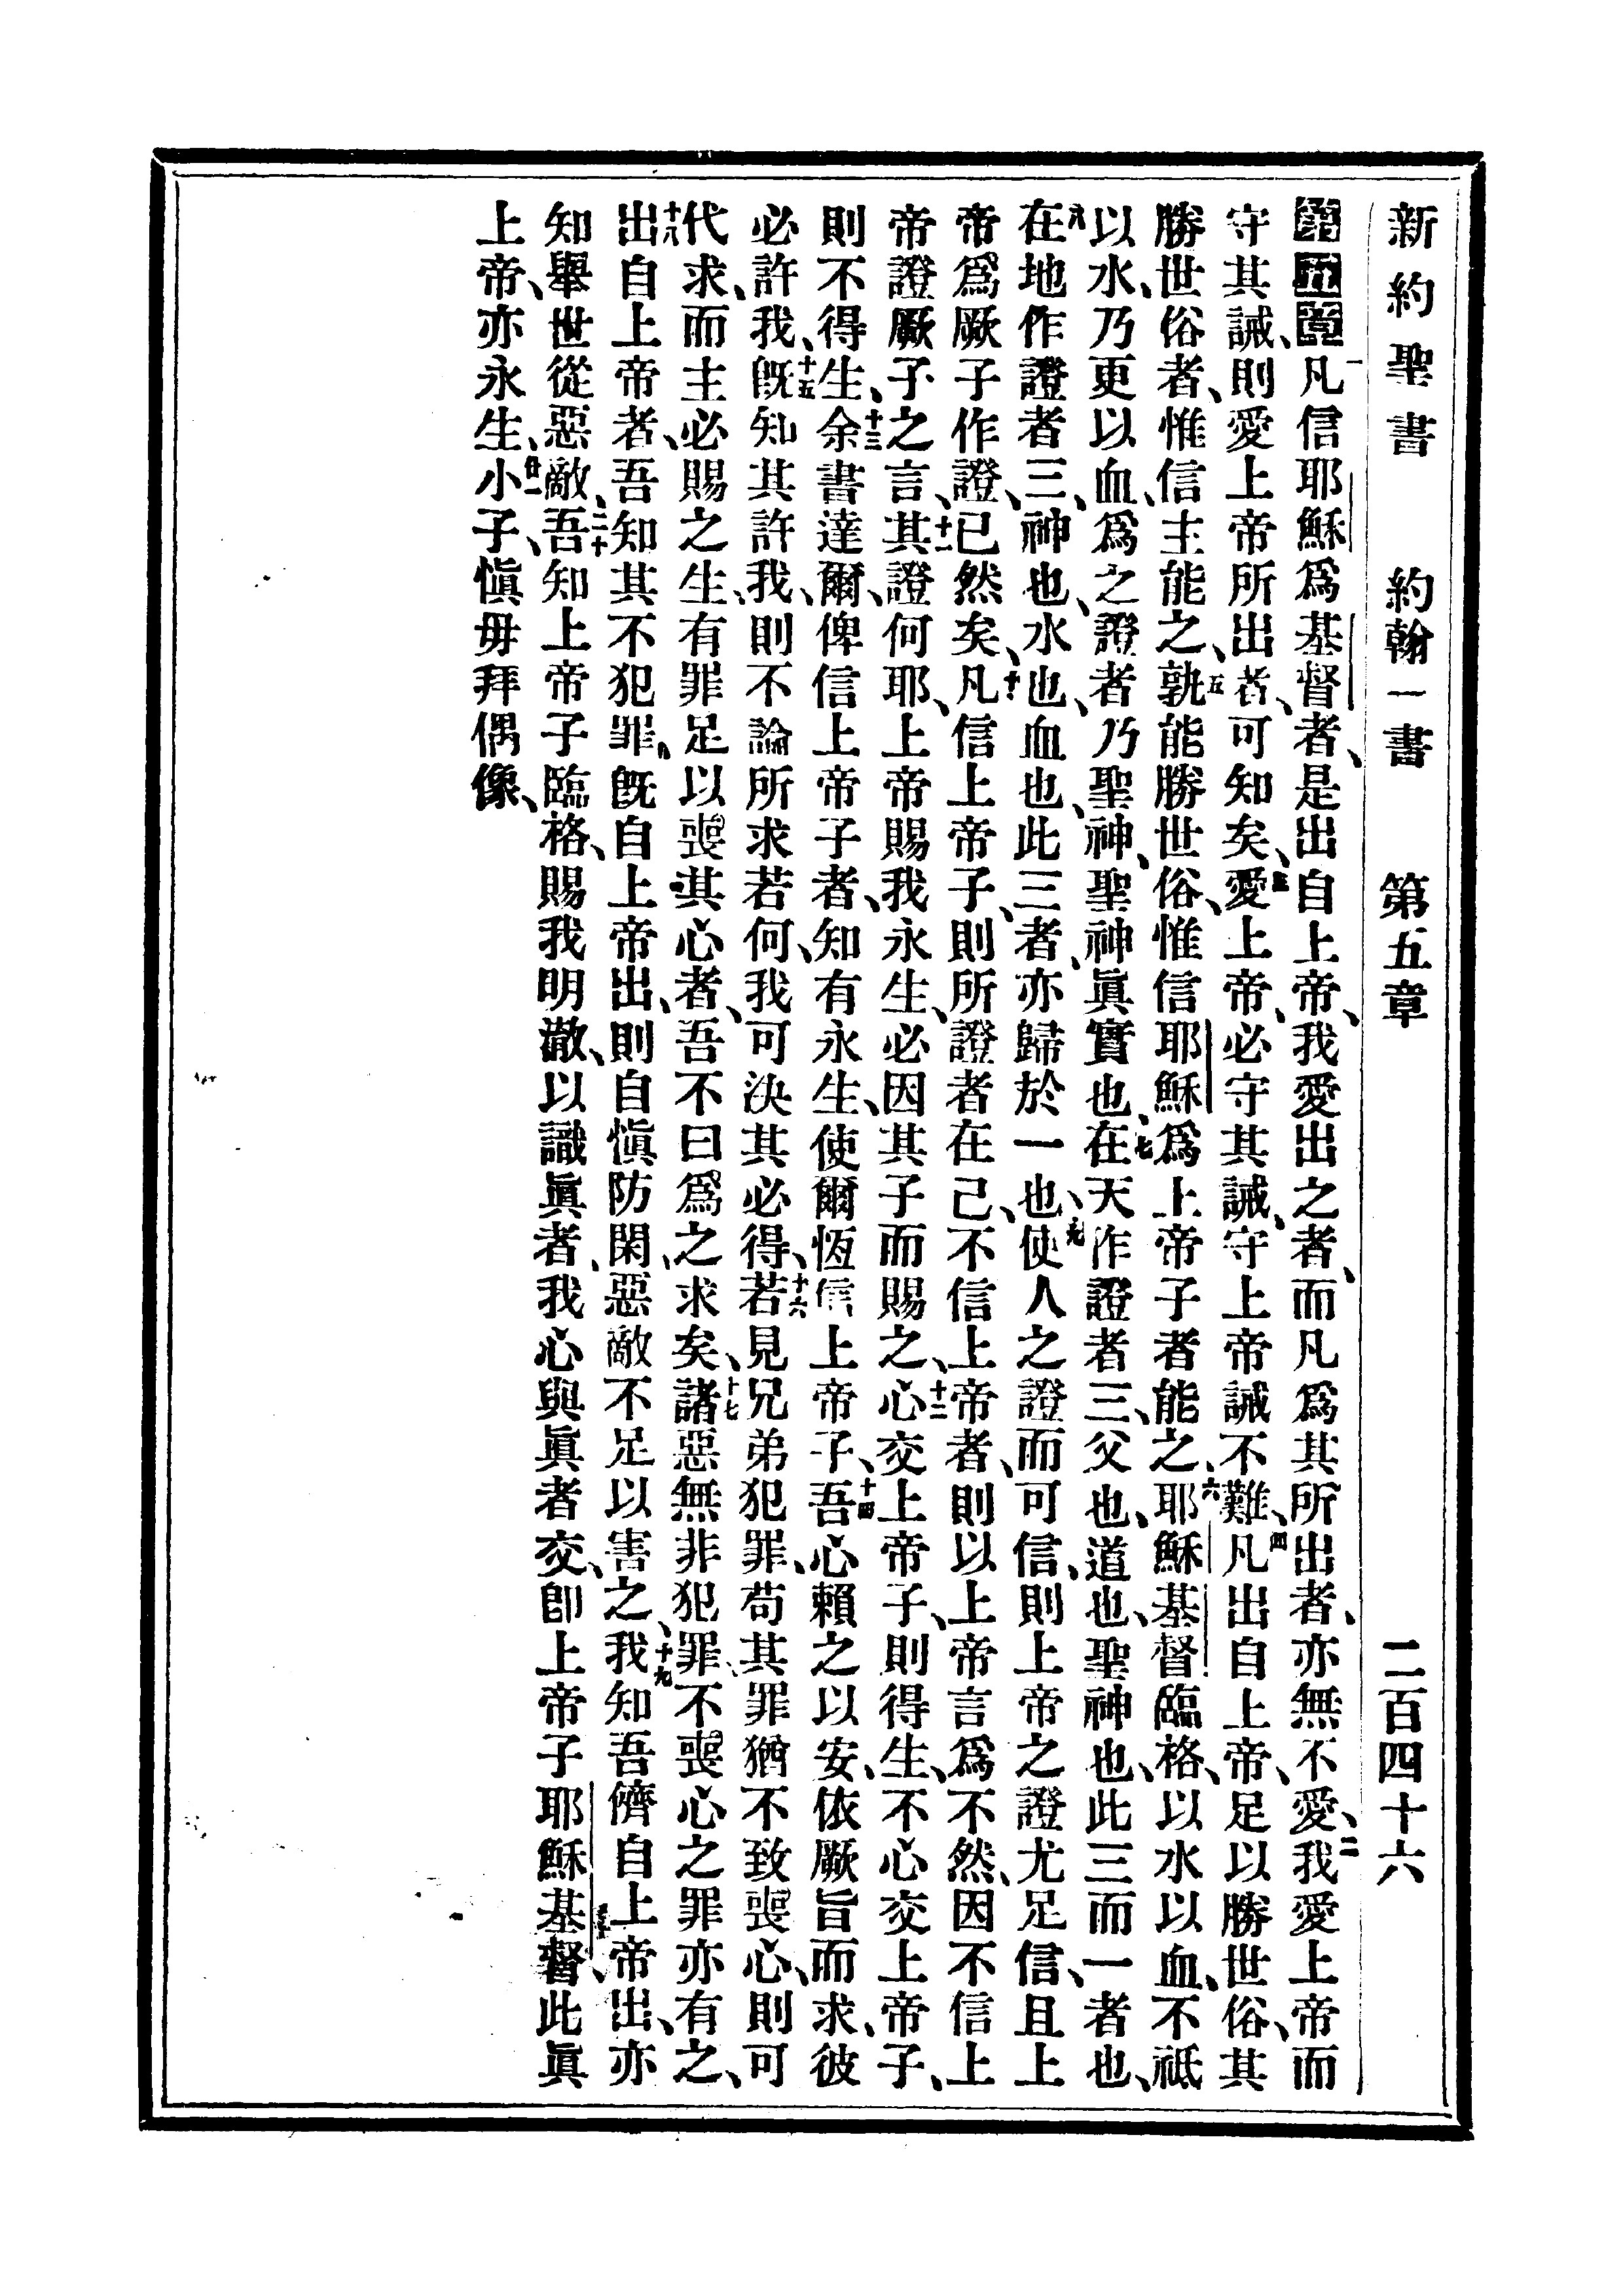 新約聖書 約翰一書 第五章 二百四十六
第五章 一凡信耶穌爲基督者、是出自上帝、我愛出之者、而凡爲其所出者、亦無不愛、二我愛上帝而
守其誡、則愛上帝所出者、可知矣、三愛上帝、必守其誡、守上帝誡不難、四凡出自上帝、足以勝世俗、其
勝世俗者、惟信主能之、五孰能勝世俗、惟信耶穌爲上帝子者能之、六耶穌基督臨格、以水以血、不祗
以水、乃更以血、爲之證者、乃聖神、聖神眞實也、七在天作證者三、父也、道也、聖神也、此三而一者也、
八在地作證者三、神也、水也、血也、此三者、亦歸於一也、九使人之證而可信、則上帝之證尤足信、且上
帝爲厥子作證、已然矣、十凡信上帝子、則所證者在己、不信上帝者、則以上帝言爲不然、因不信上
帝證厥子之言、十一其證何耶、上帝賜我永生、必因其子而賜之、十二心交上帝子、則得生、不心交上帝子、
則不得生、十三余書達爾、俾信上帝子者、知有永生、使爾恆信上帝子、十四吾心賴之以安、依厥旨而求、彼
必許我、十五旣知其許我、則不論所求若何、我可決其必得、十六若見兄弟犯罪、苟其罪猶不致喪心、則可
代求、而主必賜之生、有罪足以喪其心者、吾不曰爲之求矣、十七諸惡無非犯罪、不喪心之罪亦有之、
十八出自上帝者、吾知其不犯罪、旣自上帝出、則自愼防閑、惡敵不足以害之、十九我知吾儕自上帝出、亦
知舉世從惡敵、二十吾知上帝子臨格、賜我明澈、以識眞者、我心與眞者交、卽上帝子耶穌基督、此眞
上帝、亦永生、廿一小子、愼毋拜偶像、